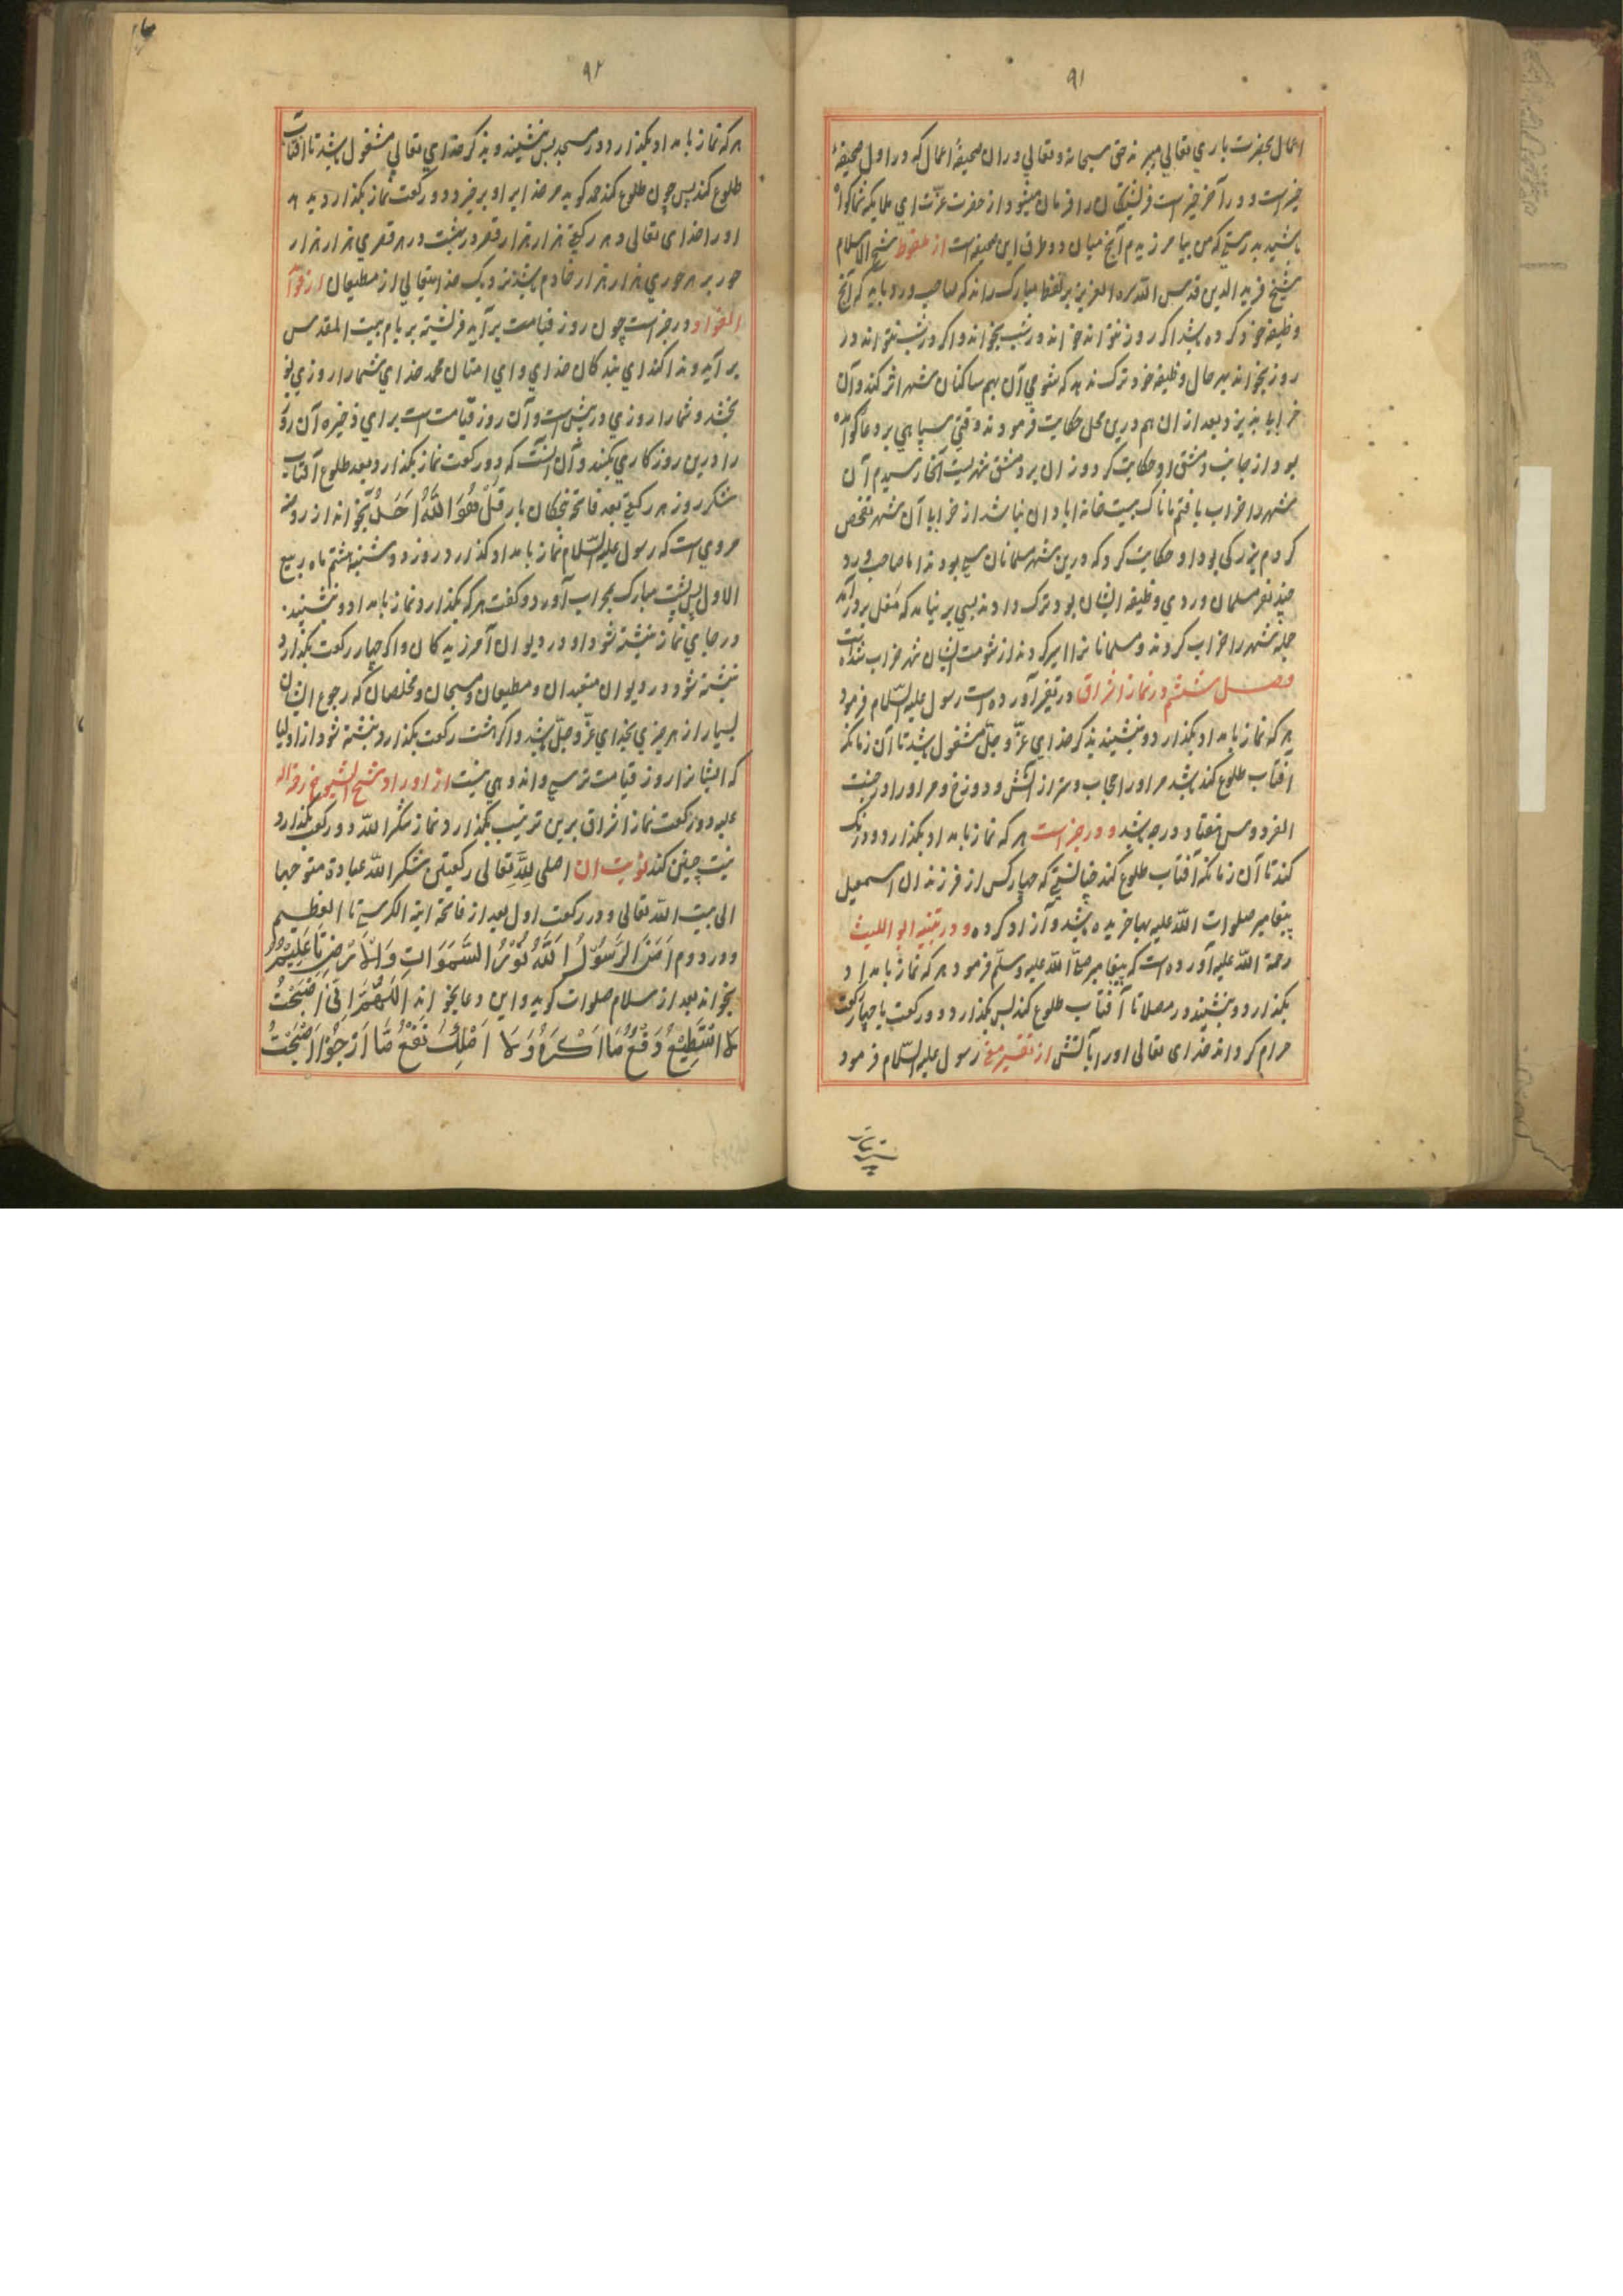 ۹۱
اعمال بحضرت باري تعالي ميبرند حق سبحانه و تعالي در ان صحيفهٔ اعمال كه در اول صحيفهٔ
خيرست و در آخر خيرست فرشتگان را فرمان ميشود از حضرت عزّت اي ملايكه شما كواه
باشيد بدرستي كه من بيامرزيدم آنچ ميان دو طرف اين صحيفه است از ملفوظ شيخ الاسلام
شيخ فريد الدين قدس الله سره العزيز بر لفظ مبارك راند كه صاحب ورد بايد كه آنچ
وظيفه خود كرده باشد اكر روز نتواند خواند در شب بخواند و اكر در شب نتواند در
روز بخواند بهر حال وظيفه خود ترك ندهد كه شومي آن بهم ساكنان شهر اثر كند و آن
خرابا پذيرد بعد از ان هم درين محل حكايت فرمودند وقتي سياهي بر دعاكو آمده
بود از جانب دمشق او حكايت كرد وزان بر دمشق شهريست آنجا رسيدم آن
شهر را خراب يافتم تا بيست خانه ابادان نباشد از خرابا آن شهر تفحص
كردم بزركي بود او حكايت كرد كه درين شهر مسلمانان بودند اما صاحب ورد
چند نفر مسلمان وردي وظيفه ايشان بود ترك دادند بسي بر نيامد كه مغل بر در آمد
جمله شهر را خراب كردند و مسلمانانرا اسير كردند از شومت ايشان شهر خراب شده است
فصل ششم در نماز اشراق آورده است رسول عليه السّلام فرمود
هر كه نماز بامداد بكذارد و بنشيند بذكر خداي عزّ و جلّ مشغول باشد تا آن زمانكه
افتاب طلوع كند باشد مر اورا حجاب و ستر از آتش و دوزخ و مر اورا در جنت
الفردوس هفتاد درجه باشد و در خبر است هر كه نماز بامداد بكذارد و درنك
كند تا آن زمانكه آفتاب طلوع كند چنانستي كه چهار كس از فرزندان اسمعيل
پيغامبر صلوات الله عليه بها خريده باشد و آزاد كرده و در تنبيه ابو الليث
رحمة الله عليه آورده است كه پيغامبر صلّي الله عليه و سلّم فرمود هر كه نماز بامداد
بكذارد و بنشيند در مصلا تا آفتاب طلوع كند پس بكذارد دو ركعت يا چهار ركعت
حرام كرداند خداى تعالى اورا بآتش از تفسير رسول عليه السّلام فرمود
۹۲
هر كه نماز بامداد بكذارد و در مسجد پس بنشيند و بذكر خداي تعالي مشغول باشد تا افتاب
طلوع كند پس چون طلوع كند حمد كويد مر خدايرا و برخيزد و دو ركعت نماز بكذارد بدهد
اورا خداى تعالى در هر ركعتي هزار هزار قصر در بهشت در هر قصري هزار هزار
حور بر هر حوري هزار هزار خادم باشد نزديك خدايتعالي از مطيعان از فوائد
الفواد در خبر است چون روز قيامت برآيد فرشته بر بام بيت المقدس
برآيد و ندا كند اي بندكان خداي و اي امتان محمد خداي شما را روزي نو
بخشد و شما را روزي در پيش است و آن روز قيامت است براي ذخيره آن روز
را درين روز كاري بكنند و آن انست كه دو ركعت نماز بكذارد بعد طلوع آفتاب
شكر روز هر ركعتي بعد فاتحه پنجكان بار قُلْ هُوَ اللّٰهُ اَحَدٌ بخواند از روضه
مروي است كه رسول عليه السّلام نماز بامداد كذارد روز دوشنبه هشتم ماه ربيع
الاول پس پشت مبارك بمحراب آورد و كفت هر كه بكذارد نماز بامداد و بنشيند
در جاي نماز نبشته شود او در ديوان آمرزيدكان و اكر چهار ركعت بكذارد
نبشته شود در ديوان متعبدان و مطيعان و مسبحان و مخلصان كه رجوع ايشان
بسيار از هر چيزي بخداي عزّ و جلّ باشد و اكر هشت ركعت بكذارد نبشته شود از اوليا
كه ايشانرا روز قيامت ترسي و اندوهي نيست از اوراد شيخ الشيوخ رحمة الله
عليه دو ركعت نماز اشراق برين ترتيب بكذارد و نماز شكر الله دو ركعت بكذارد
نيت چنين كند نويت ان اصلى لِلّٰهِ تعالى ركعتين شكر الله عبادة متوجها
الى بيت الله تعالى و در ركعت اول بعد از فاتحة اية الكرسي تا العظيم
و در دوم اٰمَنَ الرَّسُوْلُ اَللّٰهُ نُوْرُ السَّمٰوَاتِ وَالْاَرْضِ تا عَلِيْمٌ
بخواند بعد از سلام صلوات كويد و اين دعا بخواند اَللّٰهُمَّ اِنِّيْ اَصْبَحْتُ
لَا اَسْتَطِيْعُ دَفْعَ مَا اَكْرَهُ وَلَا اَمْلِكُ نَفْعَ مَا اَرْجُوْا اَصْبَحْتُ